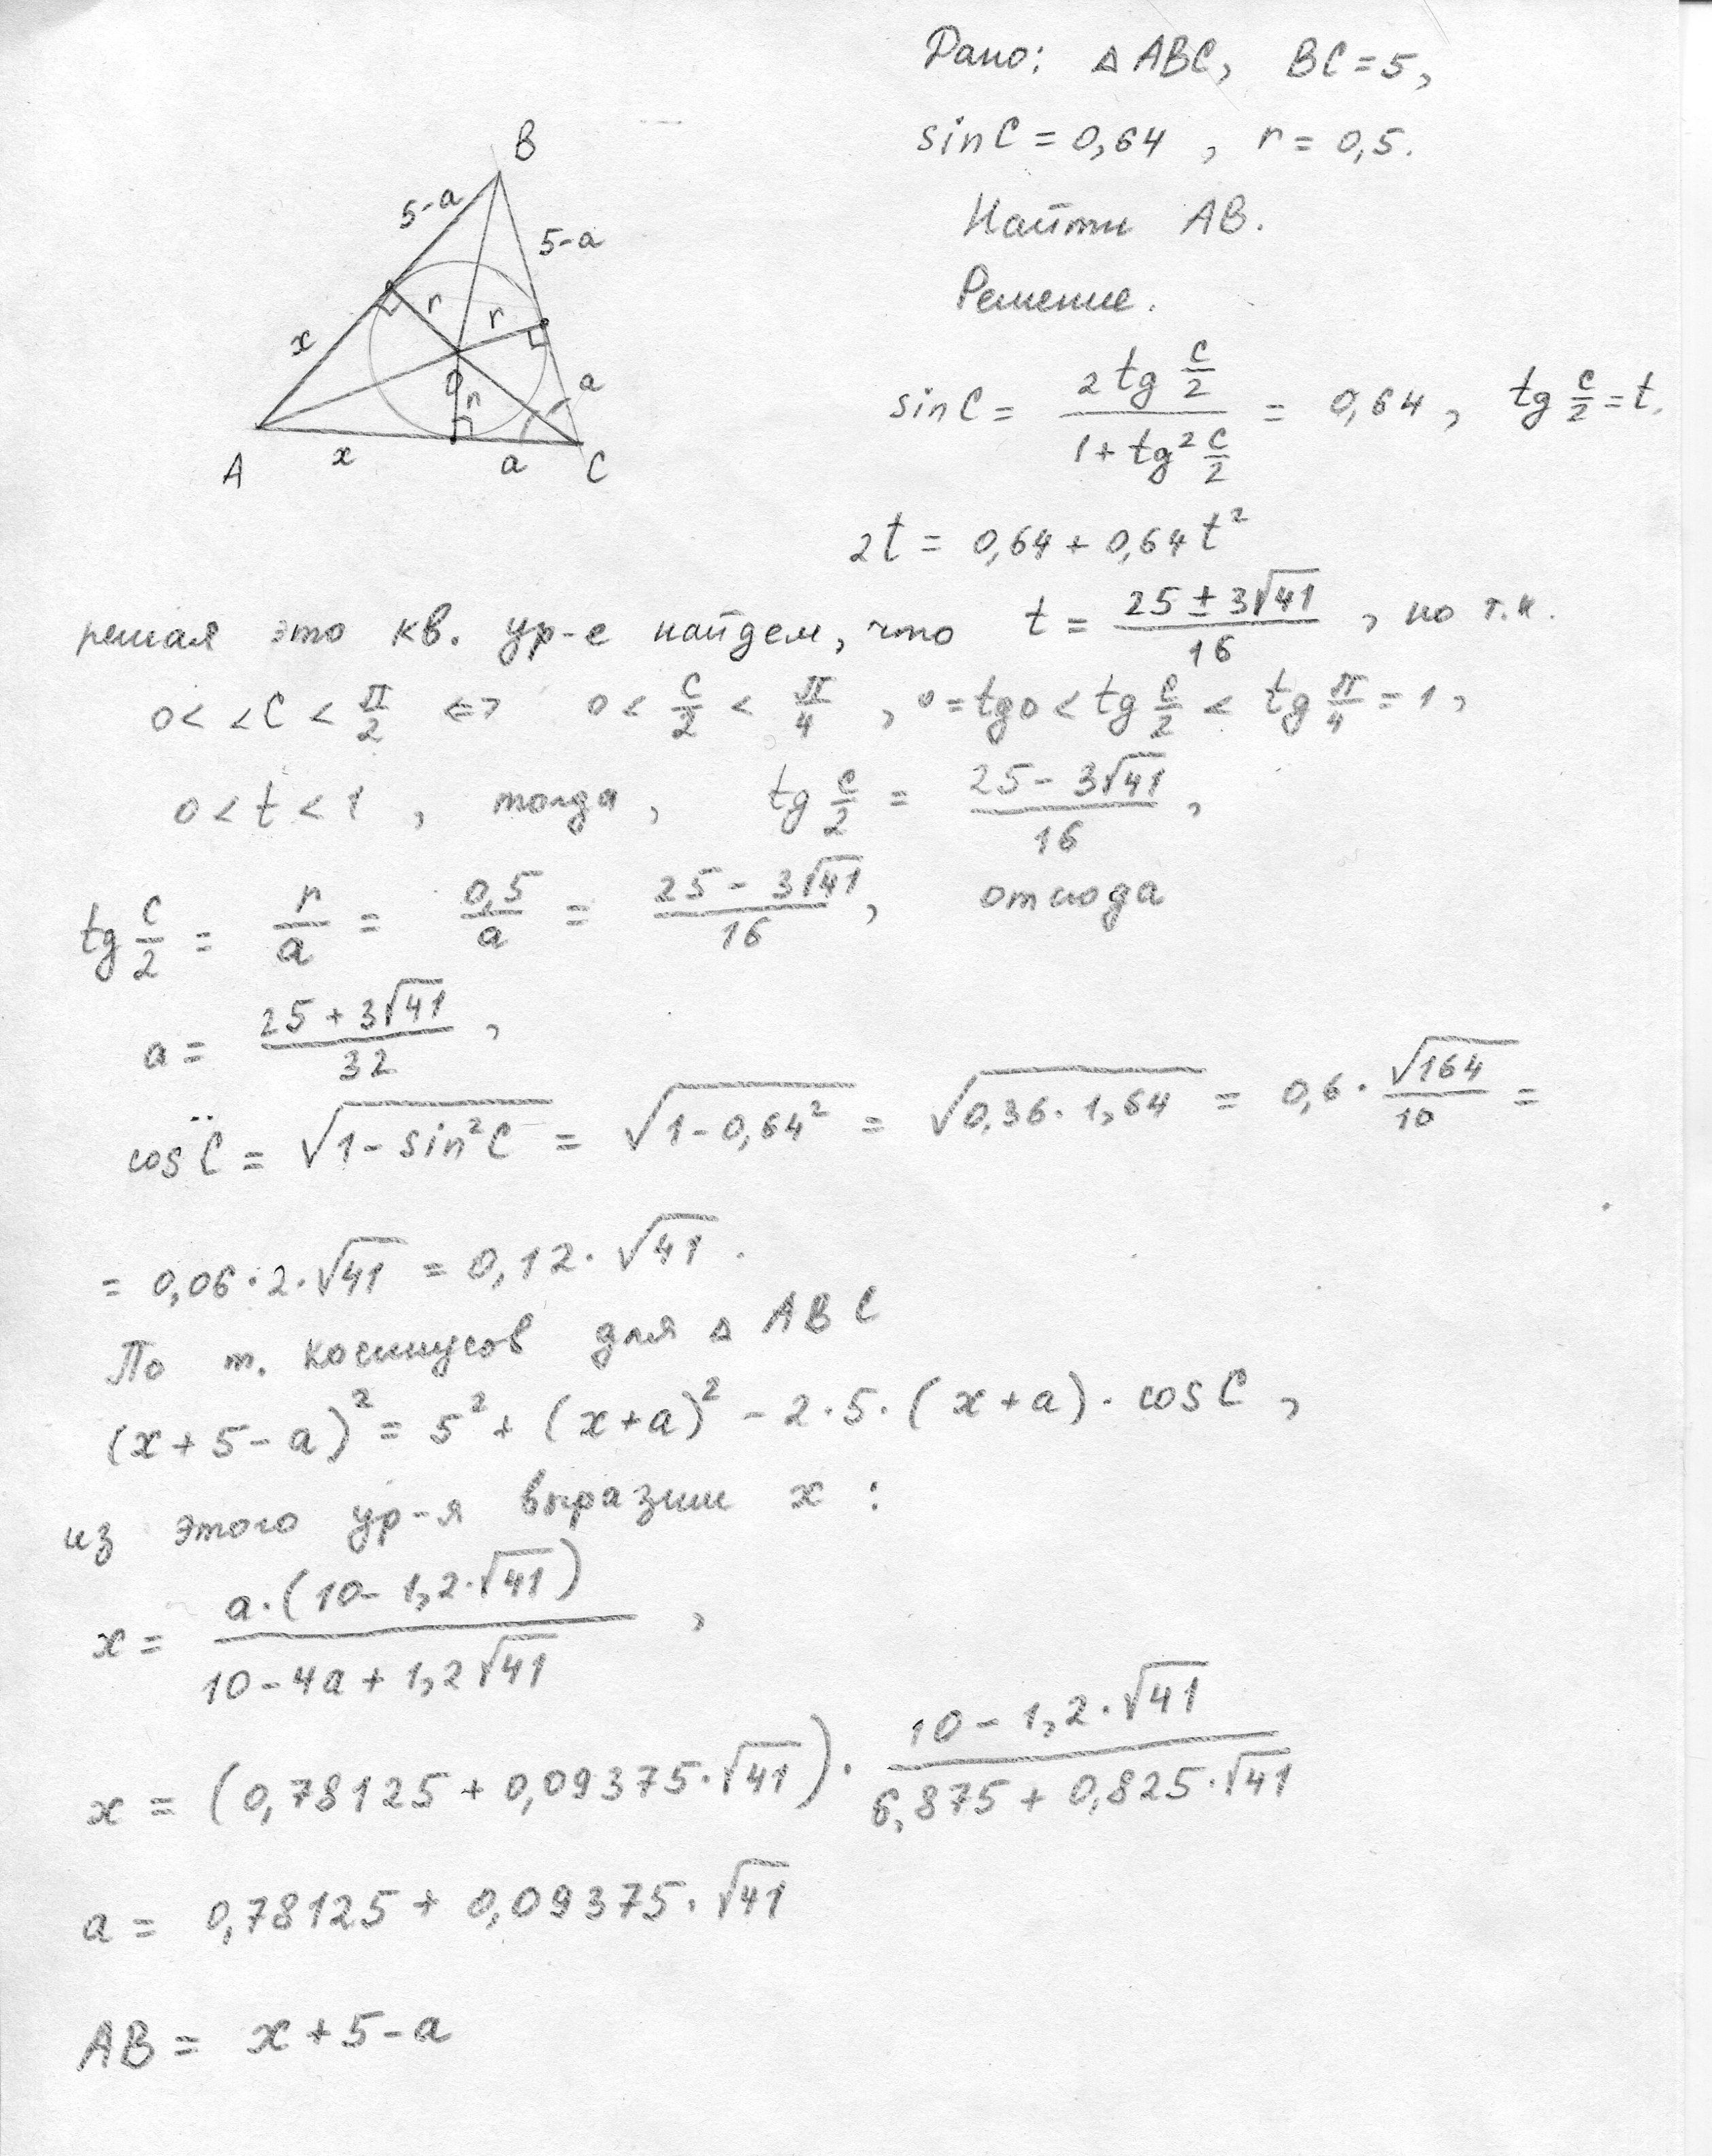 Дано: △ABC, BC=5,
sinC = 0,64 , r = 0,5.
Найти AB.
Решение.
B
5-a
5-a
x
r
r
O
r
a
A
x
a
C
sinC = 2tg C/2 / (1+tg² C/2) = 0,64, tg C/2 = t.
2t = 0,64 + 0,64t²
решая это кв. ур-е найдем, что t = (25 ± 3√41)/16, но т.к.
0 < ∠C < π/2 ⇔ 0 < C/2 < π/4 , 0 = tg0 < tg C/2 < tg π/4 = 1,
0 < t < 1 , тогда, tg C/2 = (25 - 3√41)/16,
tg C/2 = r/a = 0,5/a = (25 - 3√41)/16, отсюда
a = (25 + 3√41)/32,
cosC = √(1 - sin²C) = √(1 - 0,64²) = √(0,36·1,64) = 0,6·√164/10 =
= 0,06·2·√41 = 0,12·√41.
По т. косинусов для △ABC
(x+5-a)² = 5² + (x+a)² - 2·5·(x+a)·cosC,
из этого ур-я выразим x:
x = a·(10 - 1,2·√41) / (10 - 4a + 1,2√41),
x = (0,78125 + 0,09375·√41)·(10 - 1,2·√41)/(6,875 + 0,825·√41)
a = 0,78125 + 0,09375·√41
AB = x+5-a